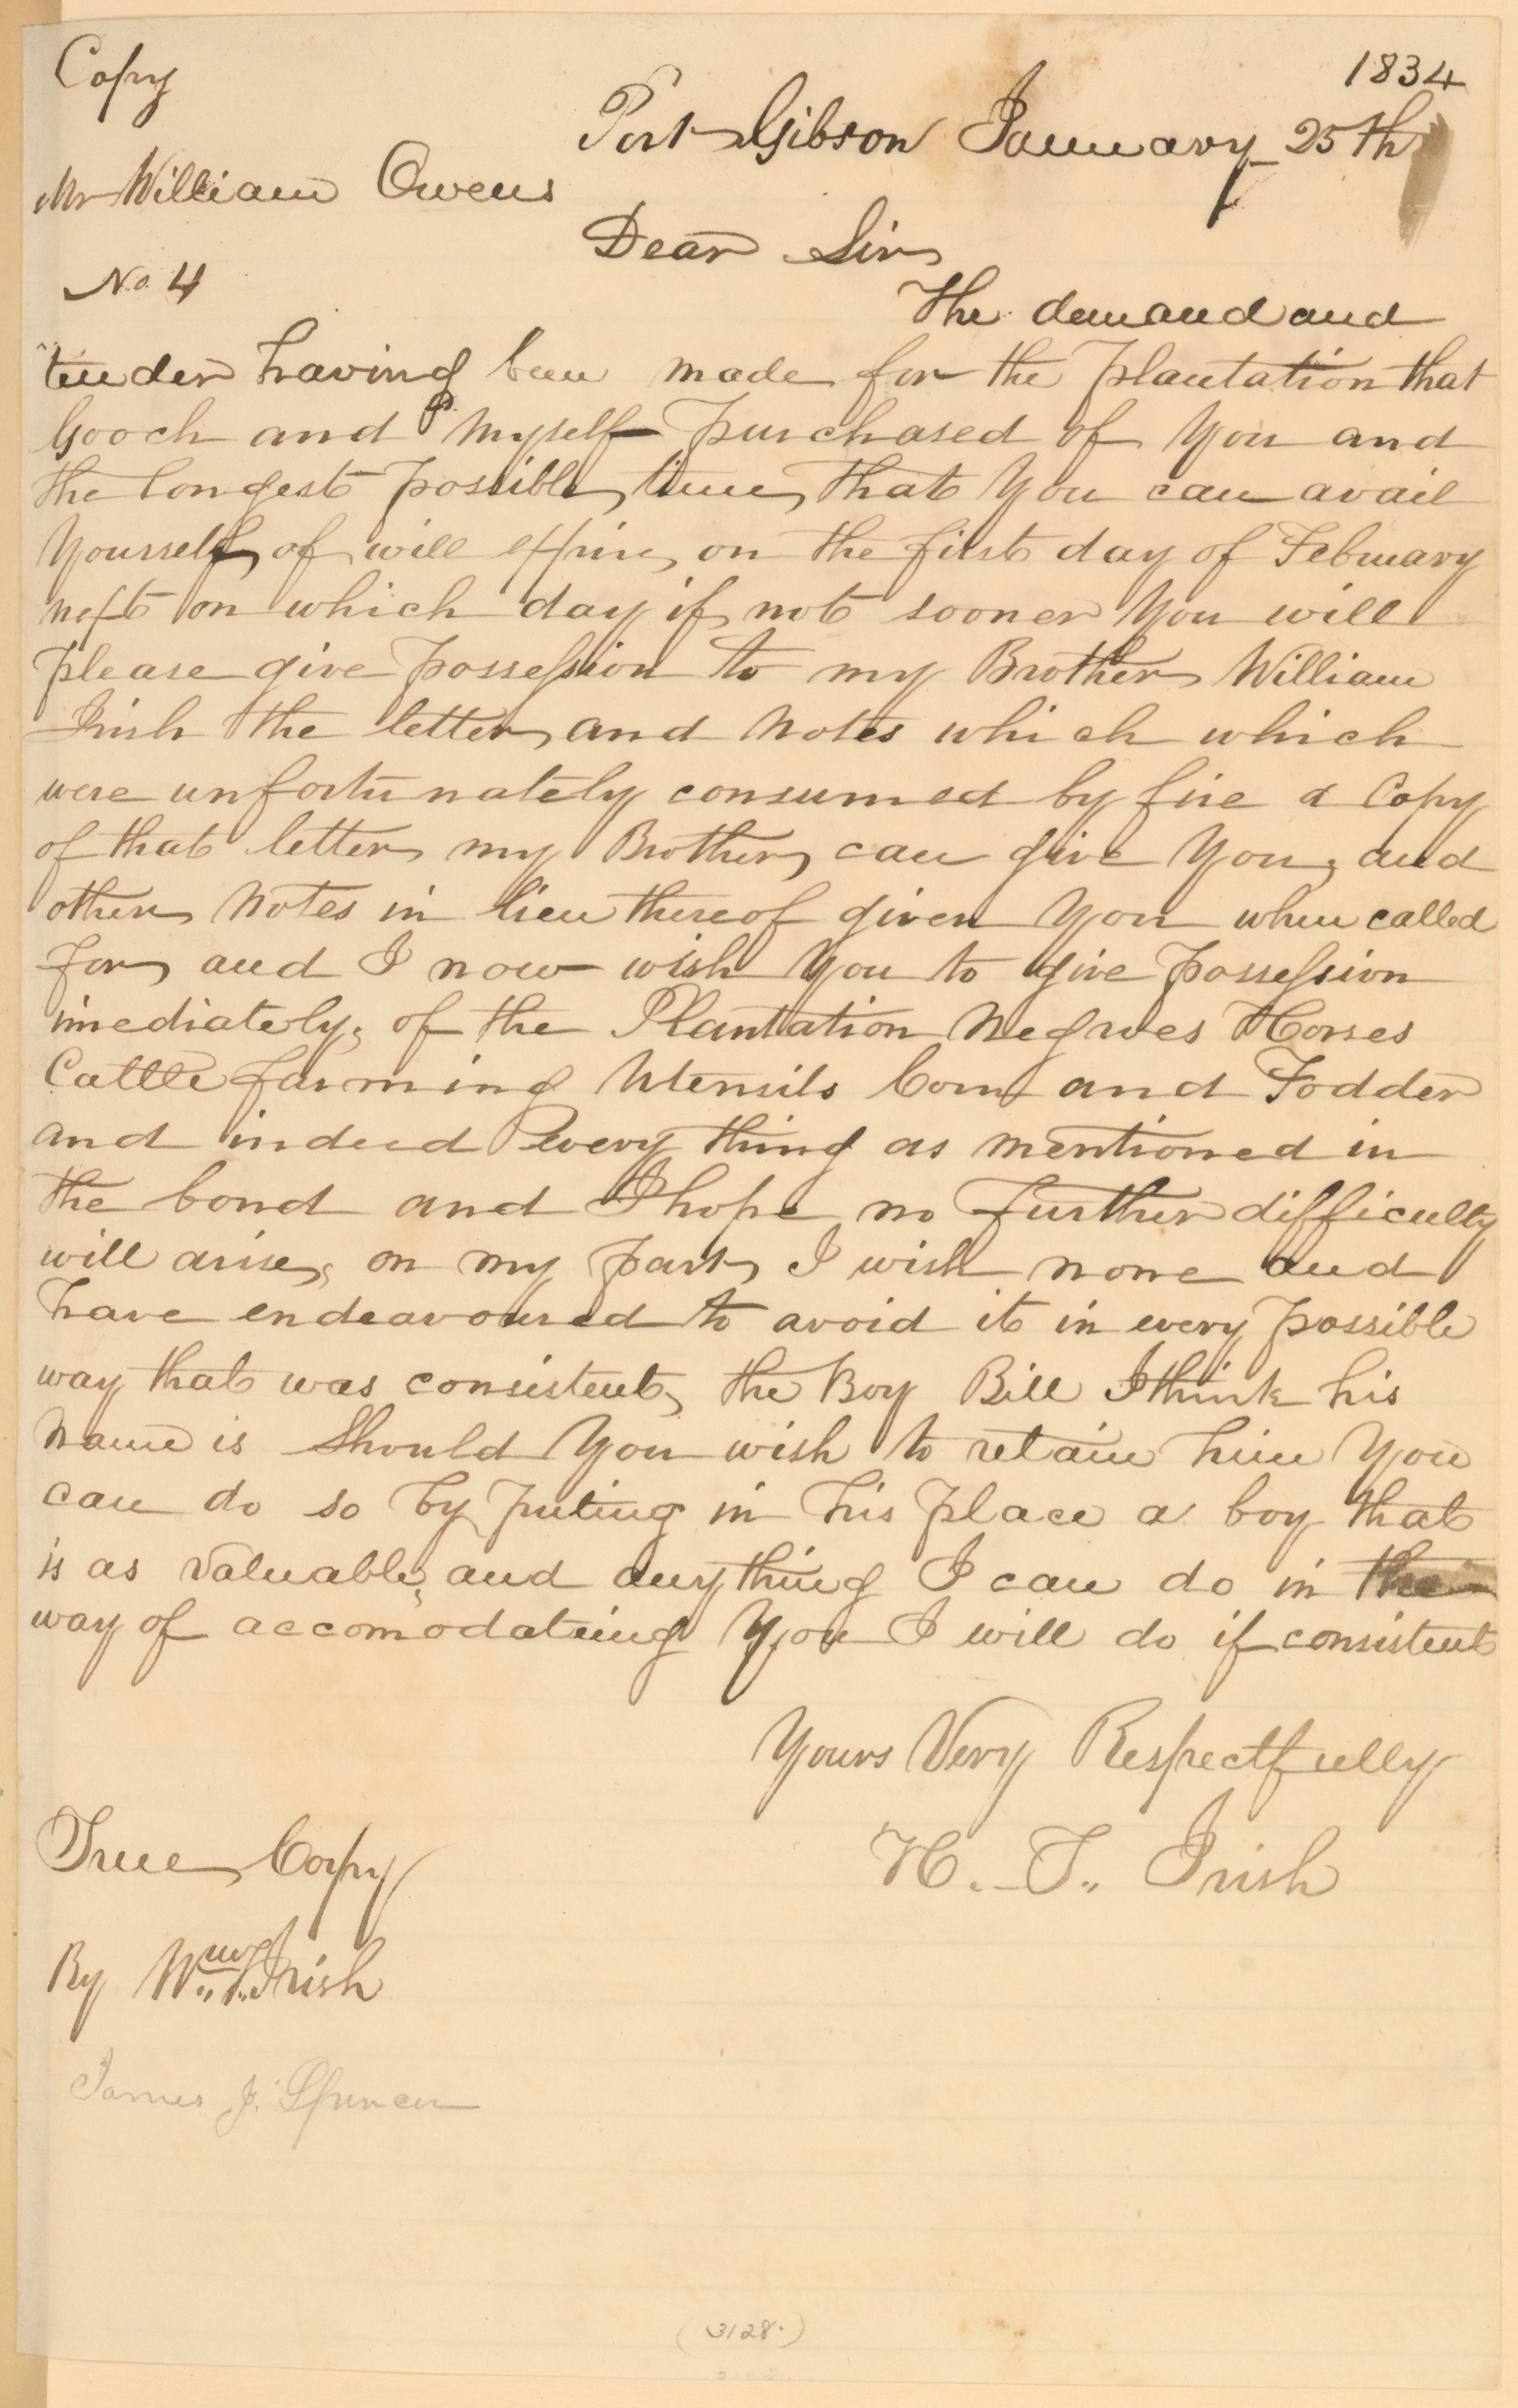 Copy
1834
Port Gibson January 25th
Mr William Owens
Dear Sir
No 4
The demand and
tender having been made for the plantation that
Gooch and myself purchased of You and
the longest possible time, that You can avail
Yousself of will expire on the first day of Febuary
next on which day if not sooner You will
please give possession to my Brother William
Irish the letter and Notes which which
were unfortunately consumed by fire a Copy
of that letter my Brother can give You, and
other Notes in lieu thereof given You when called
for, and I now wish You to give possession
imediately, of the Plantation Negroes Horses
Cattle farming Utensils Corn and Fodder
and indeed every thing as mentioned in
the bond and I hope no further difficulty
will arise, on my part, I wish none and
have endeavoured to avoid it in every possible
way that was consistent, the Boy Bill I think his
Name is Should You wish to retain him You
can do so by puting in his place a boy that
is as Valuable, and any thing I can do in the
way of accomodateing You I will do if consistent
Yours Very Respectfully
H. T. Irish
True Copy
By Wm Irish
James J. Spencer
(3128.)